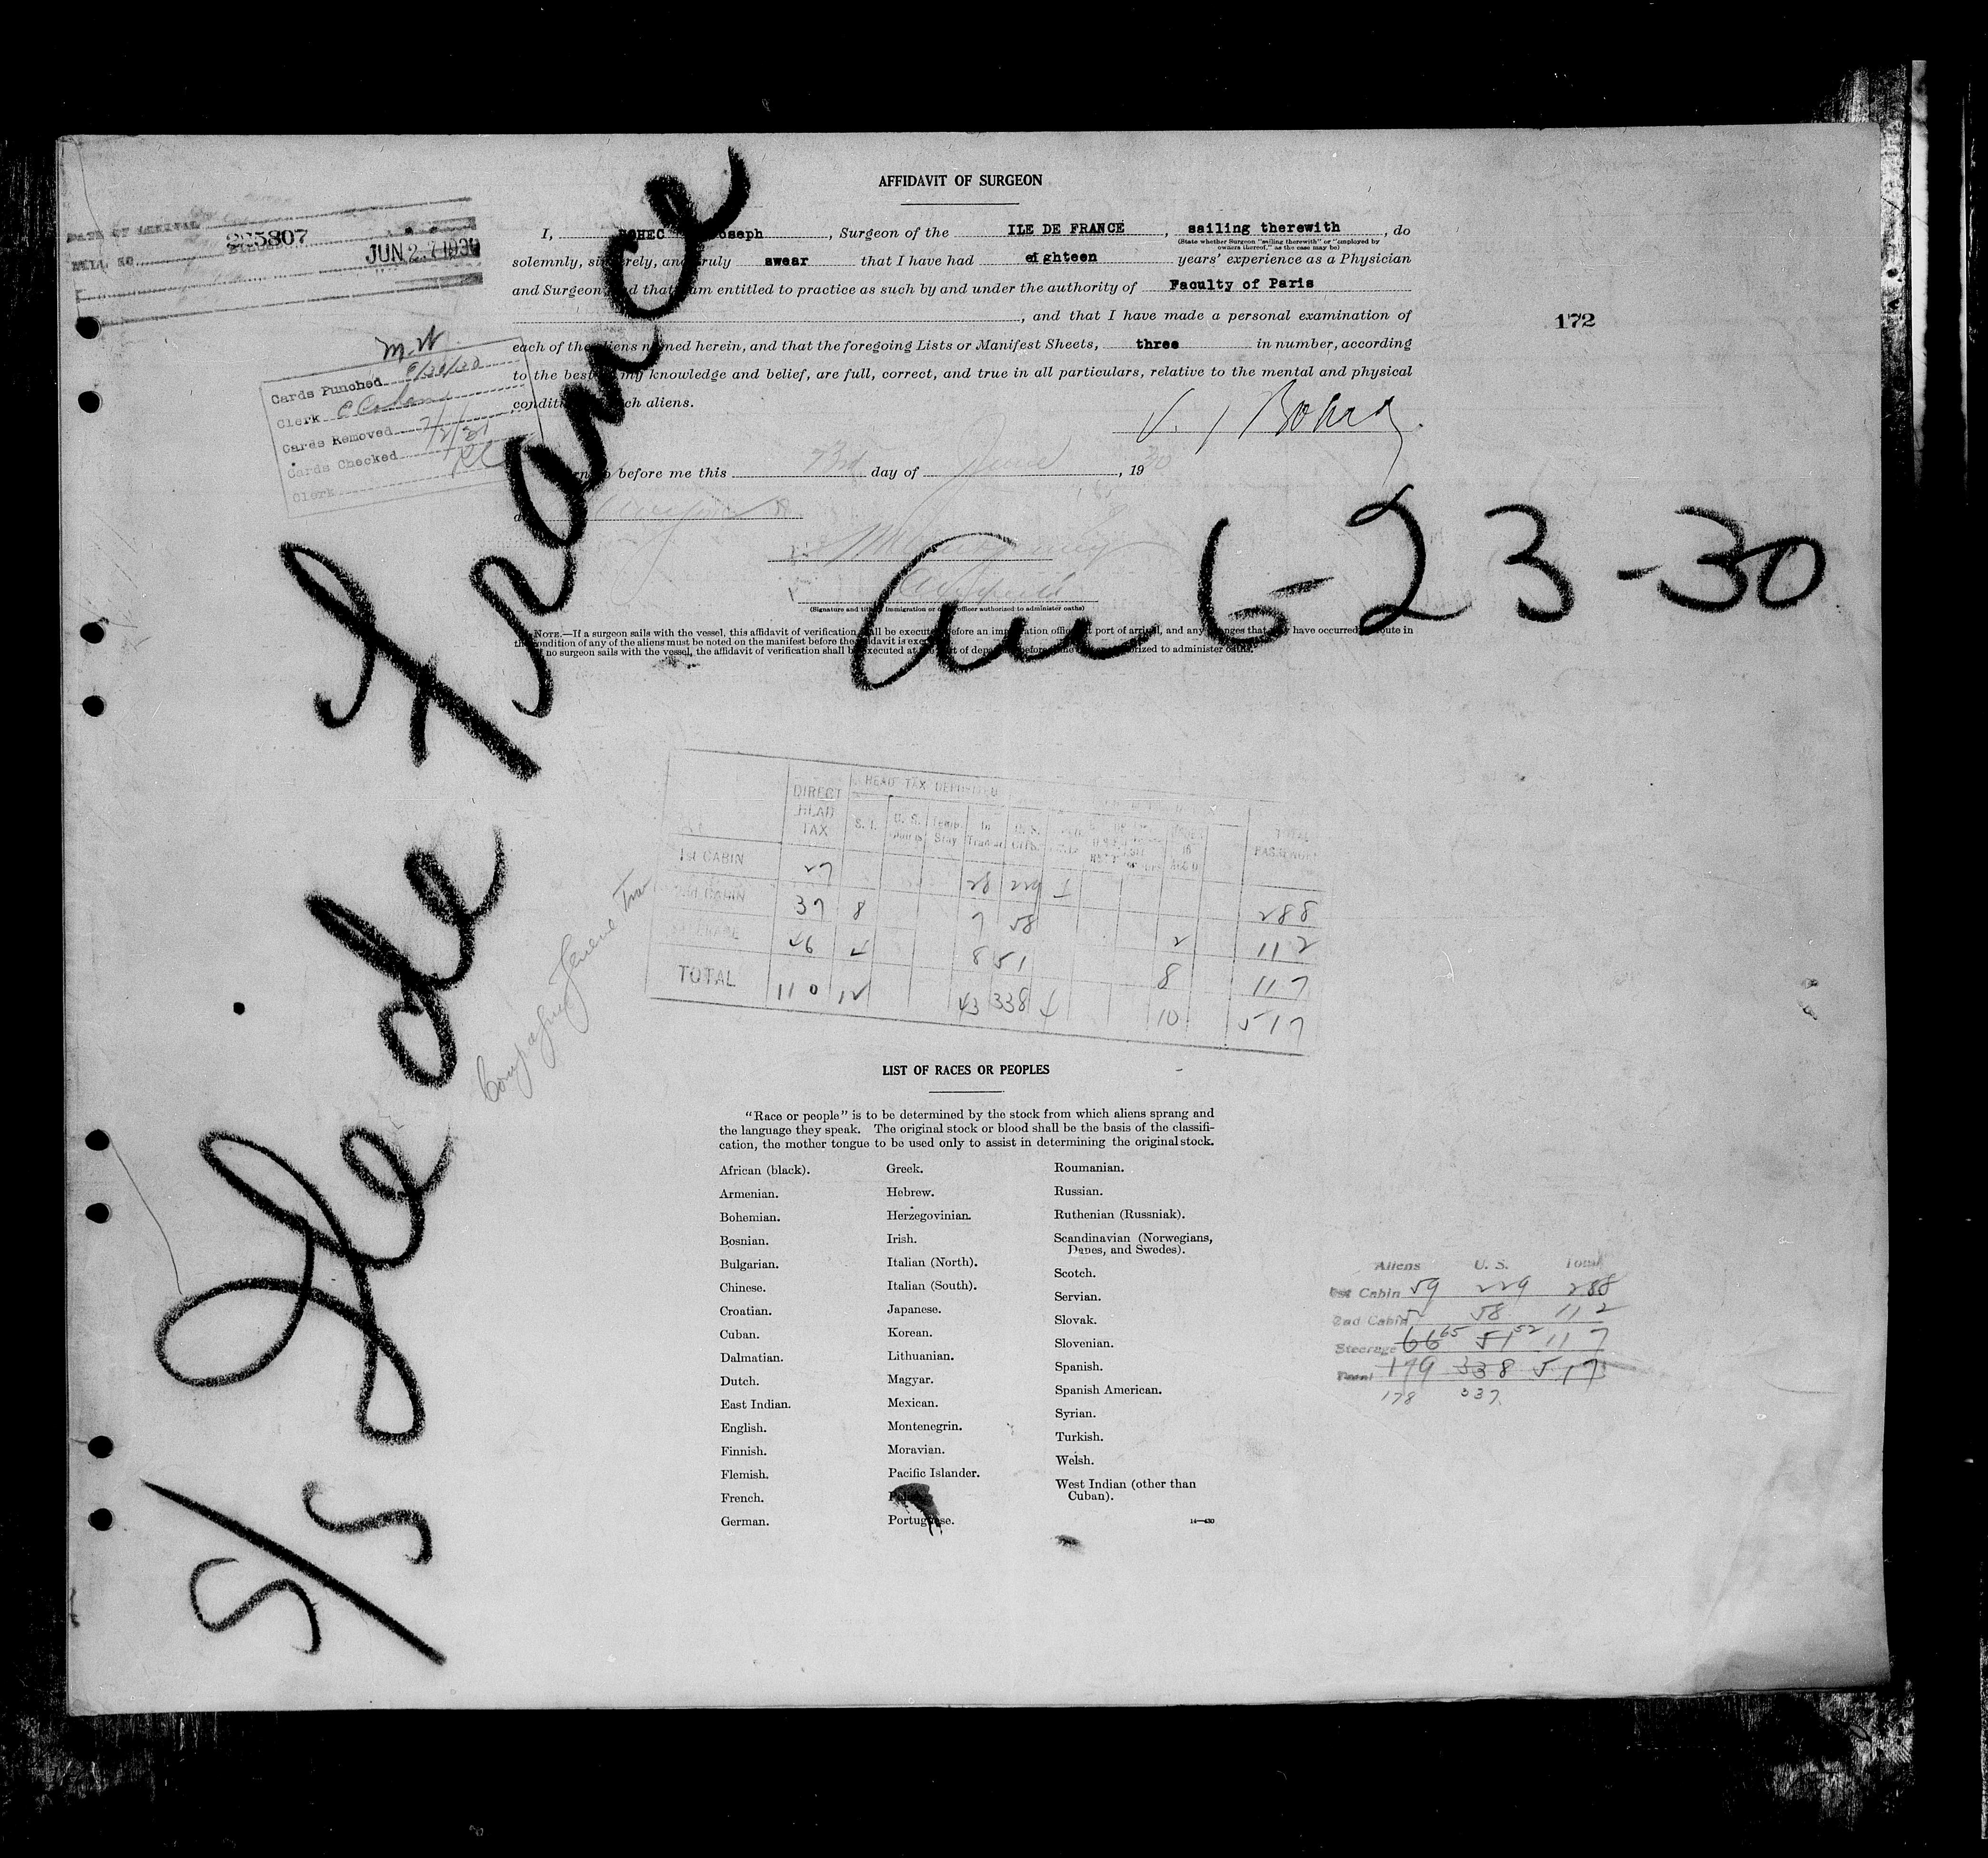 AFFIDAVIT OF SURGEON
DATE OF ARRIVAL
BILL NO. 265807
JUN 27 1930
I, BOHEC Joseph, Surgeon of the ILE DE FRANCE, sailing therewith, do
(State whether Surgeon "sailing therewith" or "employed by owners thereof," as the case may be)
solemnly, sincerely, and truly swear that I have had eighteen years' experience as a Physician
and Surgeon and that I am entitled to practice as such by and under the authority of Faculty of Paris
, and that I have made a personal examination of
each of the aliens named herein, and that the foregoing Lists or Manifest Sheets, three in number, according
to the best of my knowledge and belief, are full, correct, and true in all particulars, relative to the mental and physical
condition of such aliens.
172
Cards Punched 6/30/30
Clerk
Cards Removed
Cards Checked
Clerk
before me this 23rd day of June, 1930
at
(Signature and title of immigration or officer authorized to administer oaths)
NOTE.—If a surgeon sails with the vessel, this affidavit of verification shall be executed before an immigration officer at port of arrival, and any changes that may have occurred en route in
the condition of any of the aliens must be noted on the manifest before the affidavit is executed
If no surgeon sails with the vessel, the affidavit of verification shall be executed at the port of departure before authorized to administer oaths.
S/S Ile de France
Arr 6-23-30
DIRECT HEAD TAX
HEAD TAX DEPOSITED
S. I.
Temp. Stay
In Transit
U. S. CITS.
TOTAL
1st CABIN 27 28 229 288
2nd CABIN 37 8 7 58 2 112
STEERAGE 46 4 8 51 8 117
TOTAL 110 12 43 338 4 10 517
LIST OF RACES OR PEOPLES
"Race or people" is to be determined by the stock from which aliens sprang and
the language they speak. The original stock or blood shall be the basis of the classifi-
cation, the mother tongue to be used only to assist in determining the original stock.
African (black).
Armenian.
Bohemian.
Bosnian.
Bulgarian.
Chinese.
Croatian.
Cuban.
Dalmatian.
Dutch.
East Indian.
English.
Finnish.
Flemish.
French.
German.
Greek.
Hebrew.
Herzegovinian.
Irish.
Italian (North).
Italian (South).
Japanese.
Korean.
Lithuanian.
Magyar.
Mexican.
Montenegrin.
Moravian.
Pacific Islander.
Polish.
Portuguese.
Roumanian.
Russian.
Ruthenian (Russniak).
Scandinavian (Norwegians,
Danes, and Swedes).
Scotch.
Servian.
Slovak.
Slovenian.
Spanish.
Spanish American.
Syrian.
Turkish.
Welsh.
West Indian (other than
Cuban).
Aliens U. S. Total
1st Cabin 59 229 288
2nd Cabin 58 112
Steerage 66 65 51 52 117
Total 179 338 517
178 337